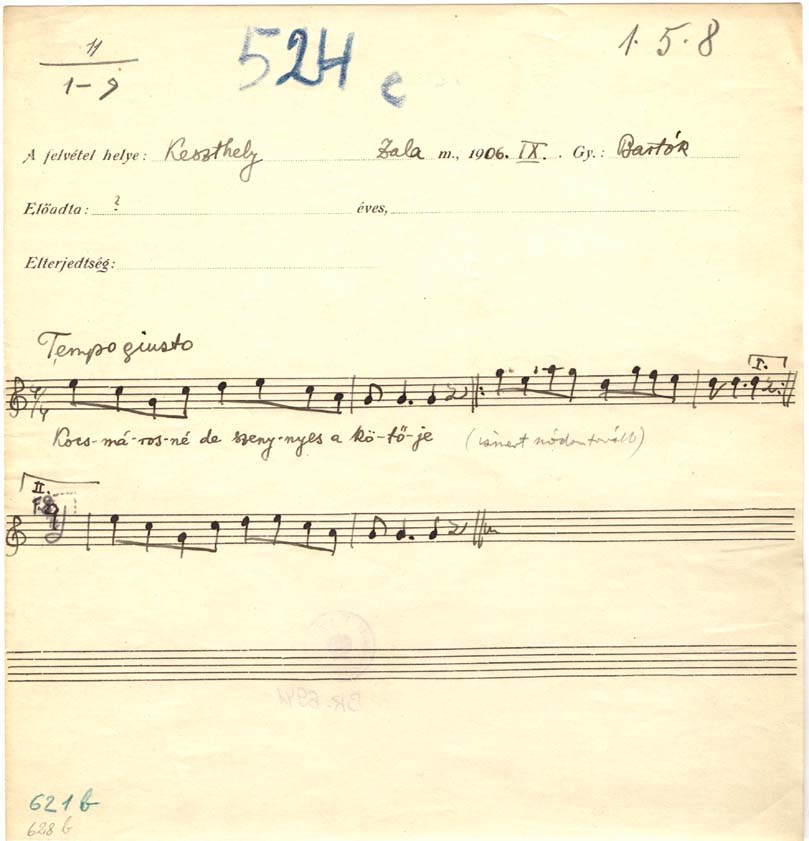 11
1-9
524 c
1. 5. 8
A felvétel helye: Keszthely Zala m., 1906. IX. . Gy.: Bartók
Előadta: ? éves,
Elterjedtség:
Tempo giusto
I.
4/4
Kocs-má-ros-né de szeny-nyes a kö-tő-je (ismert módon tovább)
II.
BR. 6941
621 b
628 b